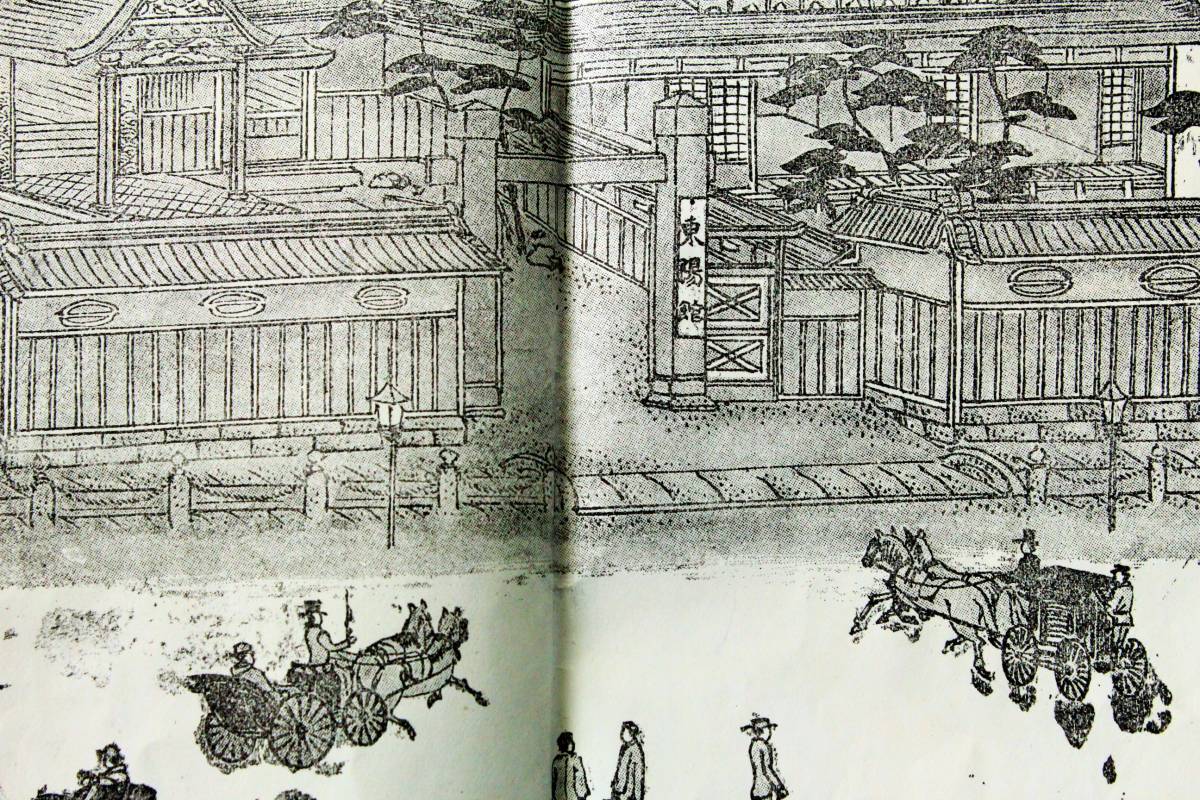 東陽館